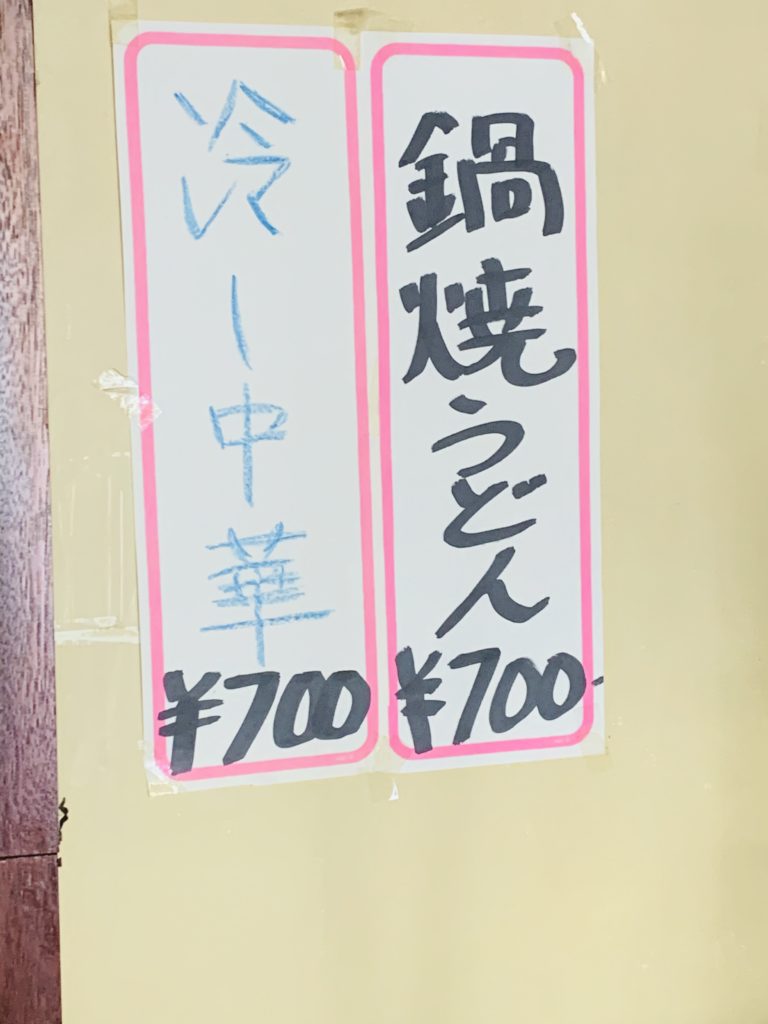 鍋焼うどん
¥700-
冷ー中華
¥700